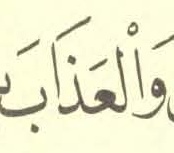 وَالْعَذَابَ